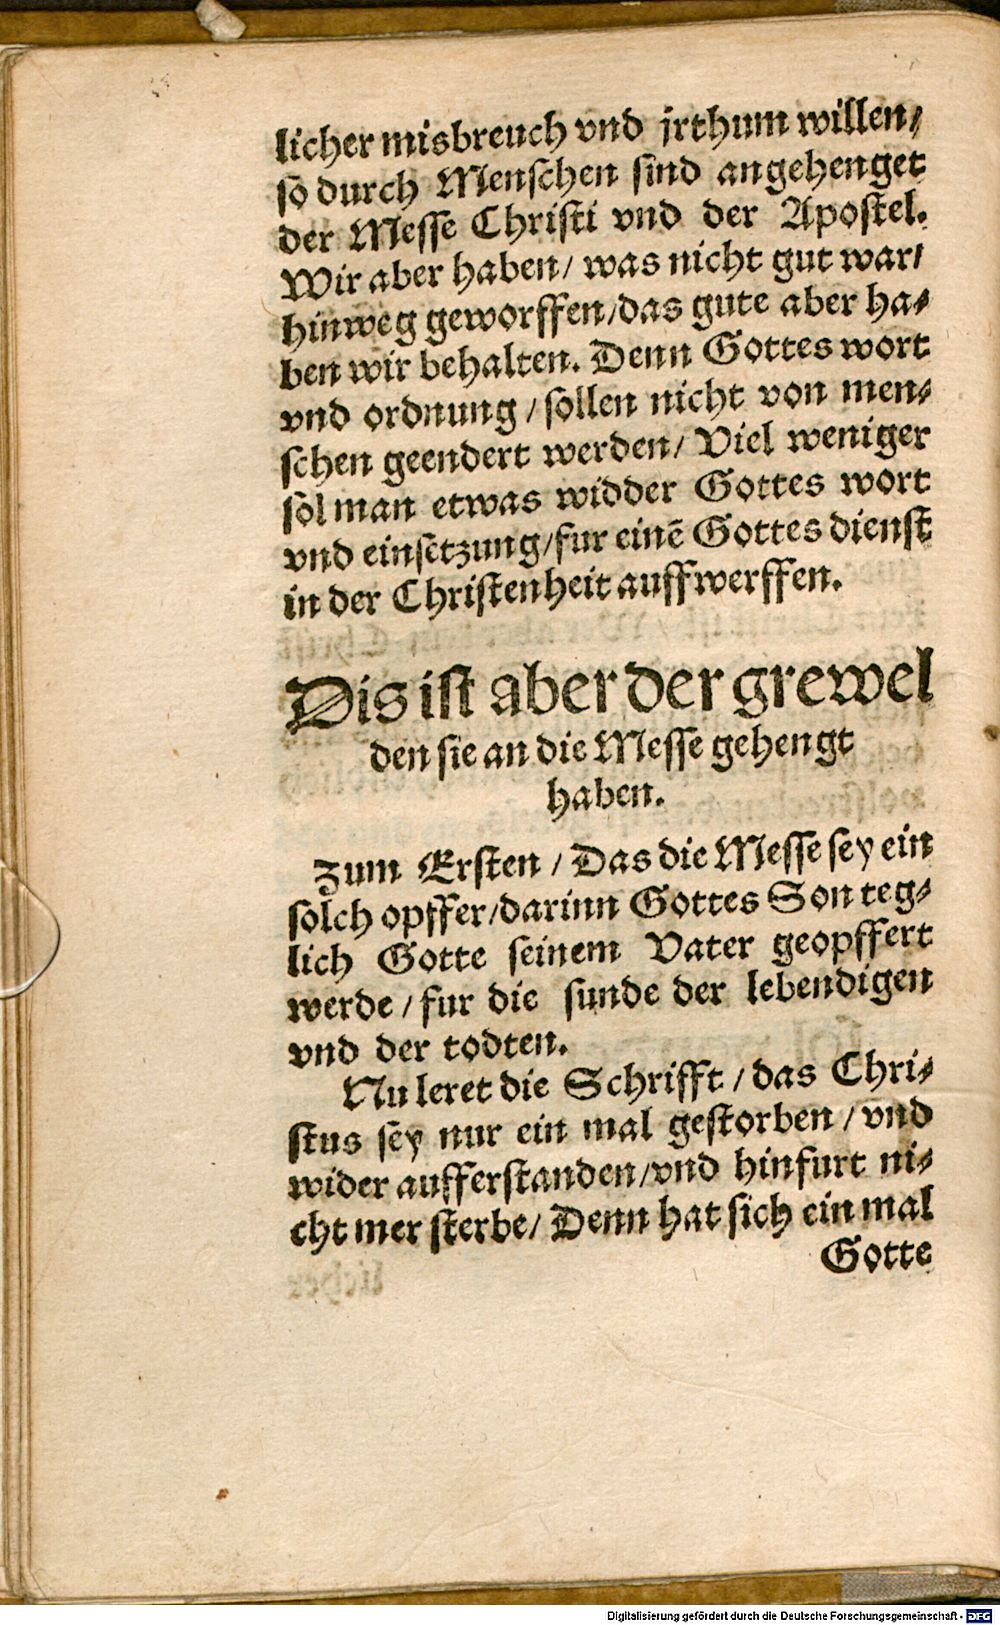 licher misbreuch vnd jrthum willen/
so durch Menschen sind angehenget
der Messe Christi vnd der Apostel.
Wir aber haben/ was nicht gut war/
hinweg geworffen/das gute aber ha⸗
ben wir behalten. Denn Gottes wort
vnd ordnung / sollen nicht von men⸗
schen geendert werden/ Viel weniger
sol man etwas widder Gottes wort
vnd einsetzung/fur einē Gottes dienst
in der Christenheit auffwerffen.
Dis ist aber der grewel
den sie an die Messe gehengt
haben.
Zum Ersten / Das die Messe sey ein
solch opffer/darinn Gottes Son teg⸗
lich Gotte seinem Vater geopffert
werde / fur die sunde der lebendigen
vnd der todten.
Nu leret die Schrifft / das Chri⸗
stus sey nur ein mal gestorben / vnd
wider aufferstanden/vnd hinfurt ni⸗
cht mer sterbe/ Denn hat sich ein mal
Gotte
Digitalisierung gefördert durch die Deutsche Forschungsgemeinschaft - DFG